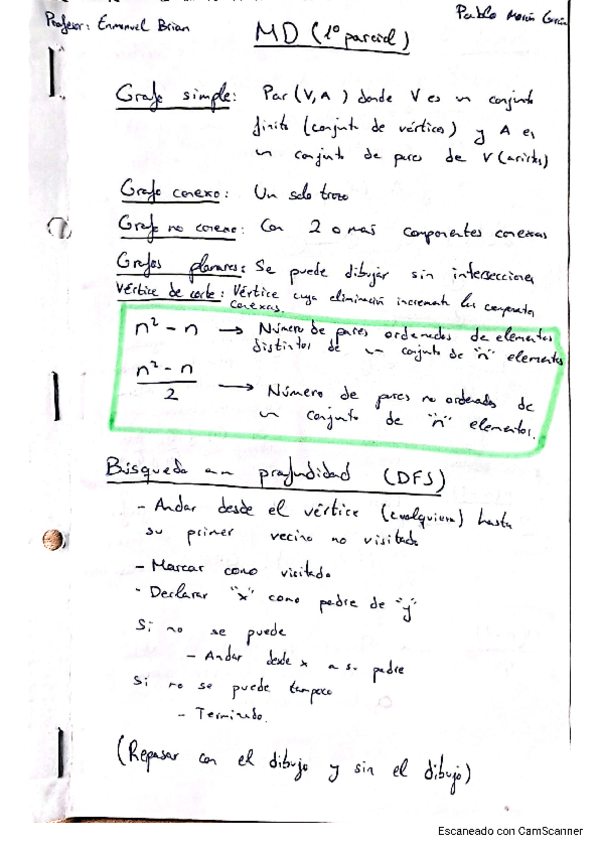 Profesor: Enmanuel Brian
Pablo
MD (1º parcial)
Grafo simple: Par (V, A) donde V es un conjunto
finito (conjunto de vértices) y A es
un conjunto de pares de V (aristas)
Grafo conexo: Un solo trozo
Grafo no conexo: Con 2 o más componentes conexas
Grafos planares: Se puede dibujar sin intersecciones
Vértice de corte: Vértice cuya eliminación incrementa las componentes
conexas.
n² - n → Número de pares ordenados de elementos
distintos de un conjunto de "n" elementos
n² - n
2 → Número de pares no ordenados de
un conjunto de "n" elementos.
Búsqueda en profundidad (DFS)
- Andar desde el vértice (cualquiera) hasta
su primer vecino no visitado
- Marcar como visitado
- Declarar "x" como padre de "y"
Si no se puede
- Andar desde x a su padre
Si no se puede tampoco
- Terminado.
(Repasar con el dibujo y sin el dibujo)
Escaneado con CamScanner